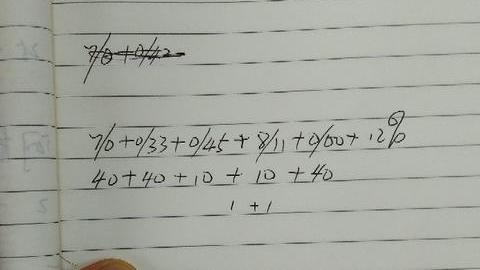 7/0+0/42
7/0+0/33+0/45+8/11+0/00+12%
40+40+10+10+40
1+1